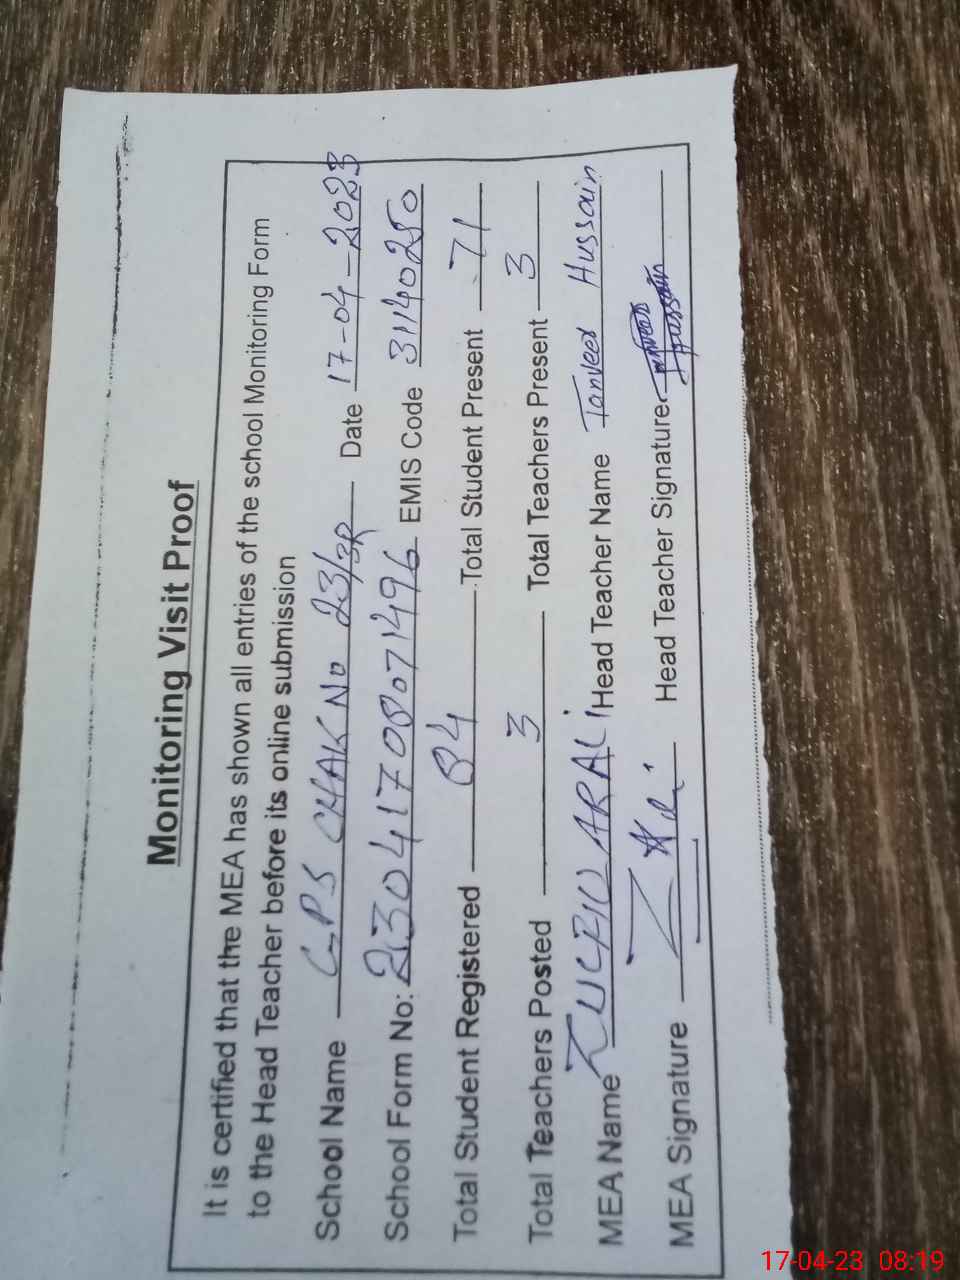 Monitoring Visit Proof
It is certified that the MEA has shown all entries of the school Monitoring Form
to the Head Teacher before its online submission
School Name GPS CHAK No 23/3R Date 17-04-2023
School Form No: 23041708071496 EMIS Code 31140250
Total Student Registered 84 Total Student Present 71
Total Teachers Posted 3 Total Teachers Present 3
MEA Name ZULFIQAR ALI Head Teacher Name Tanveer Hussain
MEA Signature Head Teacher Signature Tanveer Hussain
17-04-23 08:19